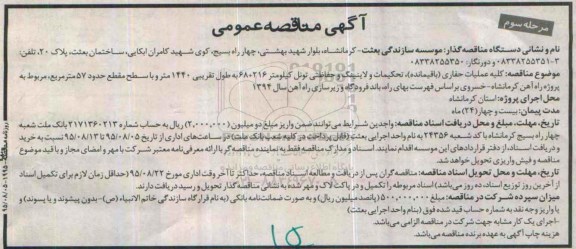 مرحله سوم
آگهی مناقصه عمومی
نام و نشانی دستگاه مناقصه‌گذار: موسسه سازندگی بعثت - کرمانشاه، بلوار شهید بهشتی، چهار راه بسیج، کوی شهید کامران ابکایی، ساختمان بعثت، پلاک ۲۰، تلفن:
۳-۰۸۳۳۸۲۵۵۳۵۱ و دورنگار: ۰۸۳۳۸۲۵۵۳۵۰
موضوع مناقصه: کلیه عملیات حفاری (باقیمانده)، تحکیمات و لاینینگ و حفاظتی تونل کیلومتر ۶۸۰۲۱۶ به طول تقریبی ۱۴۴۰ متر و با سطح مقطع حدود ۵۷ مترمربع، مربوط به
پروژه راه آهن کرمانشاه - خسروی بر اساس فهرست بهای راه، باند فرودگاه و زیرسازی راه آهن سال ۱۳۹۴
محل اجرای پروژه: استان کرمانشاه
مدت پیمان: بیست و چهار (۲۴) ماه
تاریخ، مهلت، مبلغ و محل دریافت اسناد مناقصه: واجدین شرایط می‌توانند ضمن واریز مبلغ دو میلیون (۲,۰۰۰,۰۰۰) ریال به حساب شماره ۲۱۷۱۳۶۰۲۱۳ بانک ملت شعبه
چهار راه بسیج کرمانشاه با کد شعبه ۲۴۳۵۶ به نام واحد اجرایی بعثت (قابل پرداخت در کلیه شعب بانک ملت) در ساعت‌های اداری از تاریخ ۹۵/۰۸/۰۵ تا ۹۵/۰۸/۱۳ نسبت به خرید
و دریافت اسناد، از دفتر قراردادهای این موسسه اقدام نمایند. اسناد و مدارک مناقصه فقط به نماینده مناقصه‌گر با ارائه معرفی‌نامه معتبر شرکت با مهر و امضای مجاز و با قید موضوع
مناقصه و فیش واریزی تحویل خواهد شد.
تاریخ، مهلت و محل تحویل اسناد مناقصه: مناقصه‌گران پس از دریافت و مطالعه اسناد مناقصه، حداکثر تا آخر وقت اداری مورخ ۹۵/۰۸/۲۲ (حداقل زمان لازم برای تکمیل اسناد
از آخرین روز توزیع اسناد، ده روز می‌باشد) اسناد مربوطه را تکمیل و در پاکت لاک و مهر شده به نشانی مناقصه‌گذار تحویل و رسید دریافت دارند.
میزان سپرده شرکت در مناقصه: مبلغ ۵۰۰,۰۰۰,۰۰۰ (پانصد میلیون ریال) و به صورت ضمانت‌نامه بانکی (به نام قرارگاه سازندگی خاتم الانبیاء (ص) - بدون پیشوند و یا پسوند) و
یا واریز وجه نقد به شماره حساب قید شده فوق (بنام واحد اجرایی بعثت)
-اجرای یک کار مشابه جهت شرکت در مناقصه الزامی می‌باشد.
هزینه چاپ آگهی به عهده برنده مناقصه می‌باشد.
۹۵/۰۸/۰۵